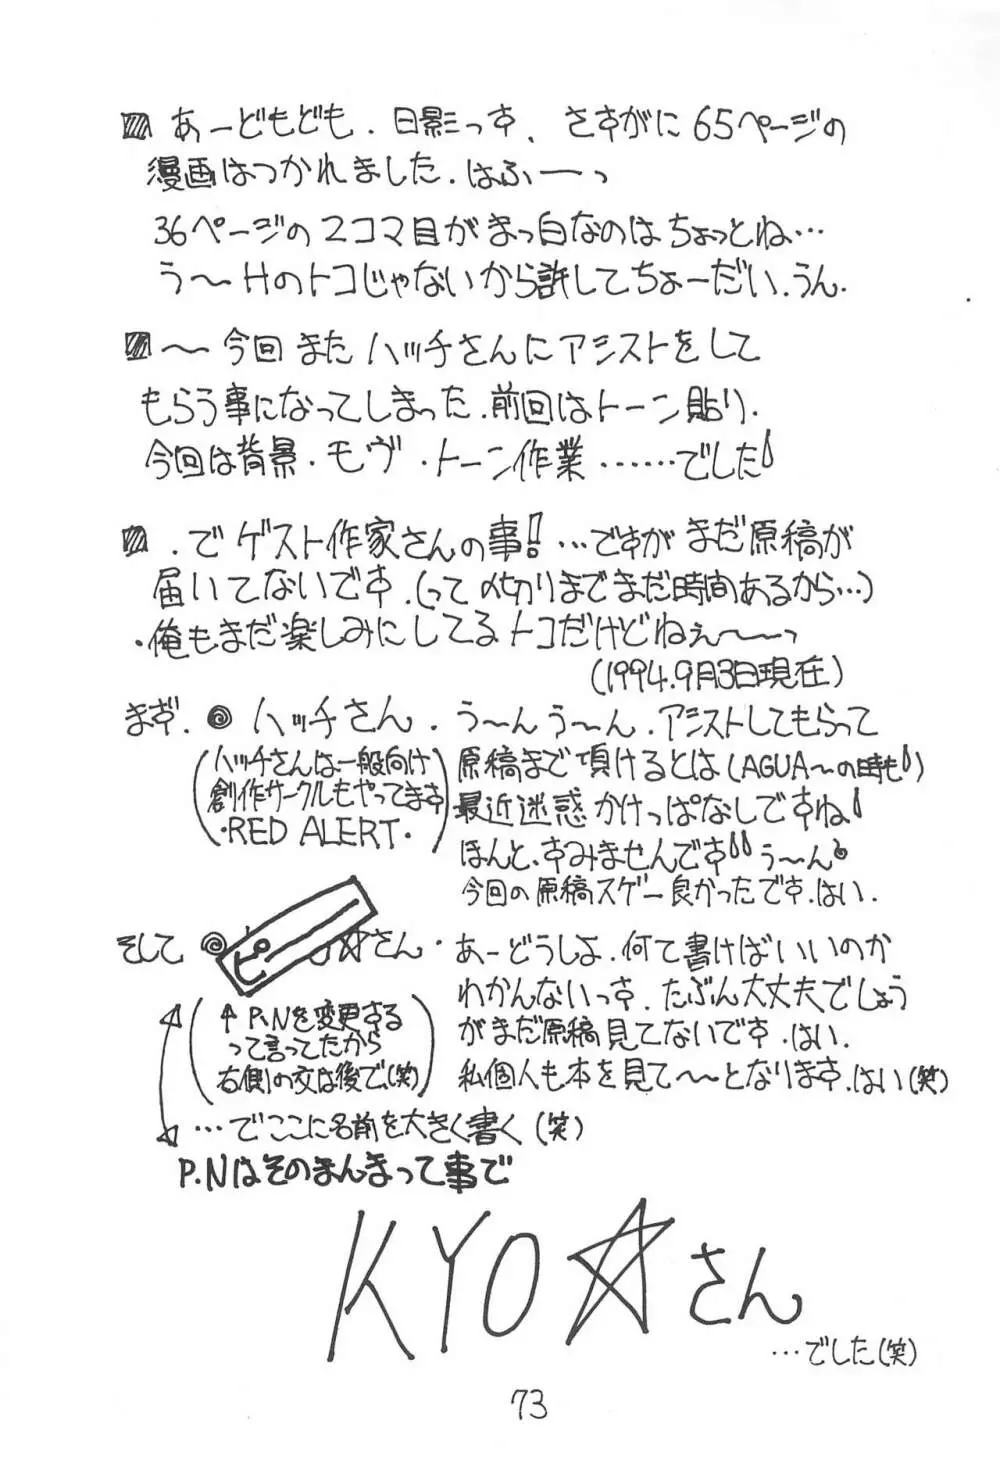 ▨ あーどもども．日影っす、さすがに65ページの
漫画はつかれました．はふーーっ
36ページの2コマ目がまっ白なのはちょっとね…
う〜Hのトコじゃないから許してちょーだい．うん．
▨〜今回またハッチさんにアシストをして
もらう事になってしまった．前回はトーン貼り．
今回は背景・モヴ・トーン作業……でした!
▨．でゲスト作家さんの事!!…ですがまだ原稿が
届いてないです．(って〆切りまでまだ時間あるから…)
・俺もまだ楽しみにしてるトコだけどねぇ〜〜っ
(1994.9月3日現在)
まず．◎ハッチさん．う〜んう〜ん．アシストしてもらって
原稿まで頂けるとは(AGUA〜の時も!)
最近迷惑かけっぱなしですね!
ほんと、すみませんです!!う〜ん
今回の原稿スゲー良かったです．はい．
(ハッチさんは一般向け
創作サークルもやってます
・RED ALERT・)
そして◎ピー☆さん・あーどうしよ．何て書けばいいのか
わかんないっす．たぶん大丈夫でしょう
がまだ原稿見てないです．はい．
私個人も本を見て〜〜となります．はい(笑)
(↑P.Nを変更する
って言ってたから
右側の文は後で(笑))
…でここに名前を大きく書く(笑)
P.Nはそのまんまって事で
KYO☆さん
…でした(笑)
73